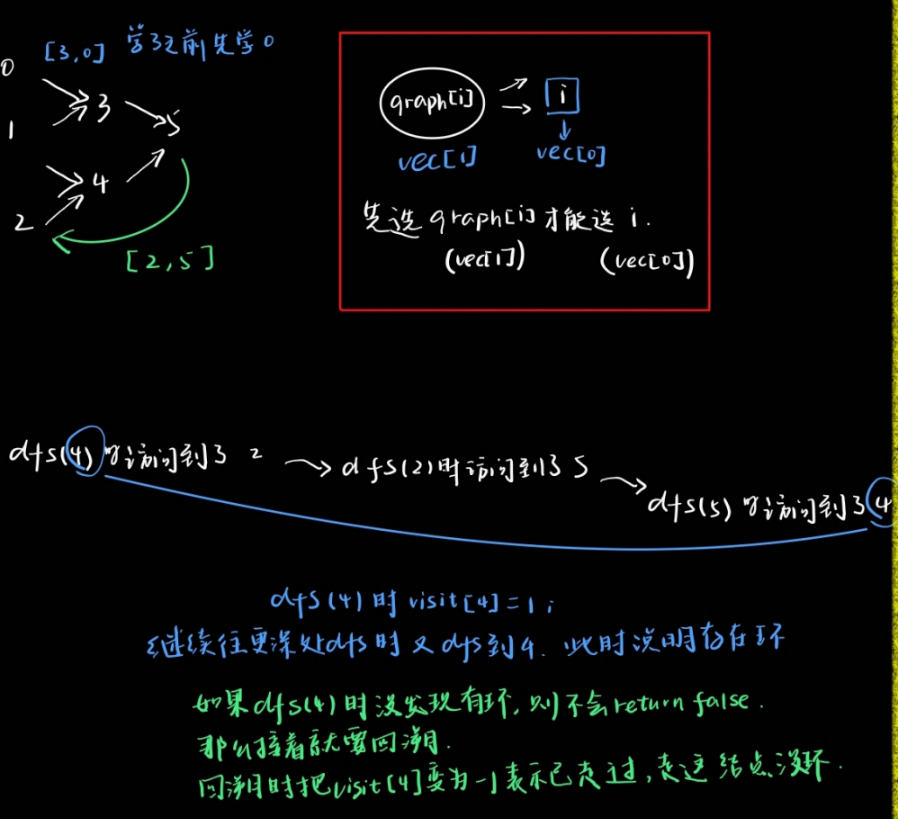 [3,0] 学3之前先学0
0
3
1
5
4
2
[2,5]
graph[i] i
vec[1] vec[0]
先选graph[i]才能选i.
(vec[1]) (vec[0])
dfs(4)时访问到了2
dfs(2)时访问到了5
dfs(5)时访问到了4
dfs(4)时visit[4]=1;
继续往更深处dfs时又dfs到4.此时说明存在环
如果dfs(4)时没发现有环,则不会return false.
那么接着就要回溯.
回溯时把visit[4]变为-1表示已走过,走这结点没环.